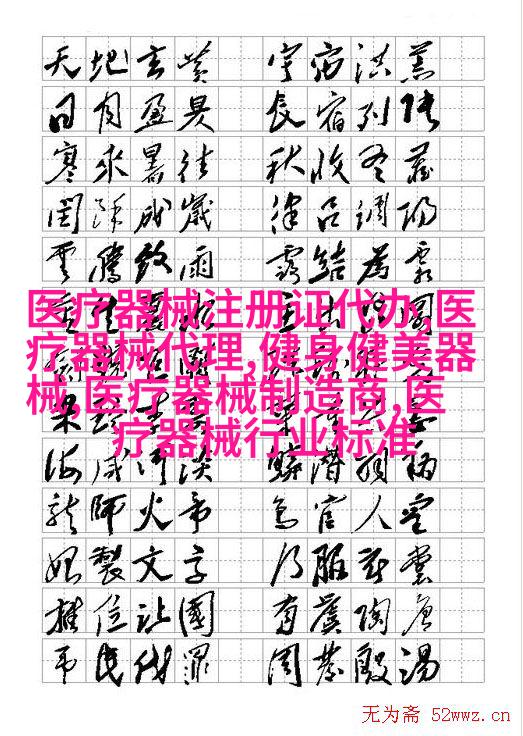 天地玄黄 宇宙洪荒
日月盈昃 辰宿列張
寒來暑往 秋收冬藏
閏餘成歲 律吕調陽
雲騰致雨 露結為霜
医疗器械注册证代办,医
疗器械代理,健身健美器
械,医疗器械制造商,医
疗器械行业标准
海咸河淡 鱗潛羽翔
龍師火帝 鳥官人皇
始製文字 乃服衣裳
推位讓國 有虞陶唐
吊民伐罪 周發殷湯
无为斋 52wwz.cn